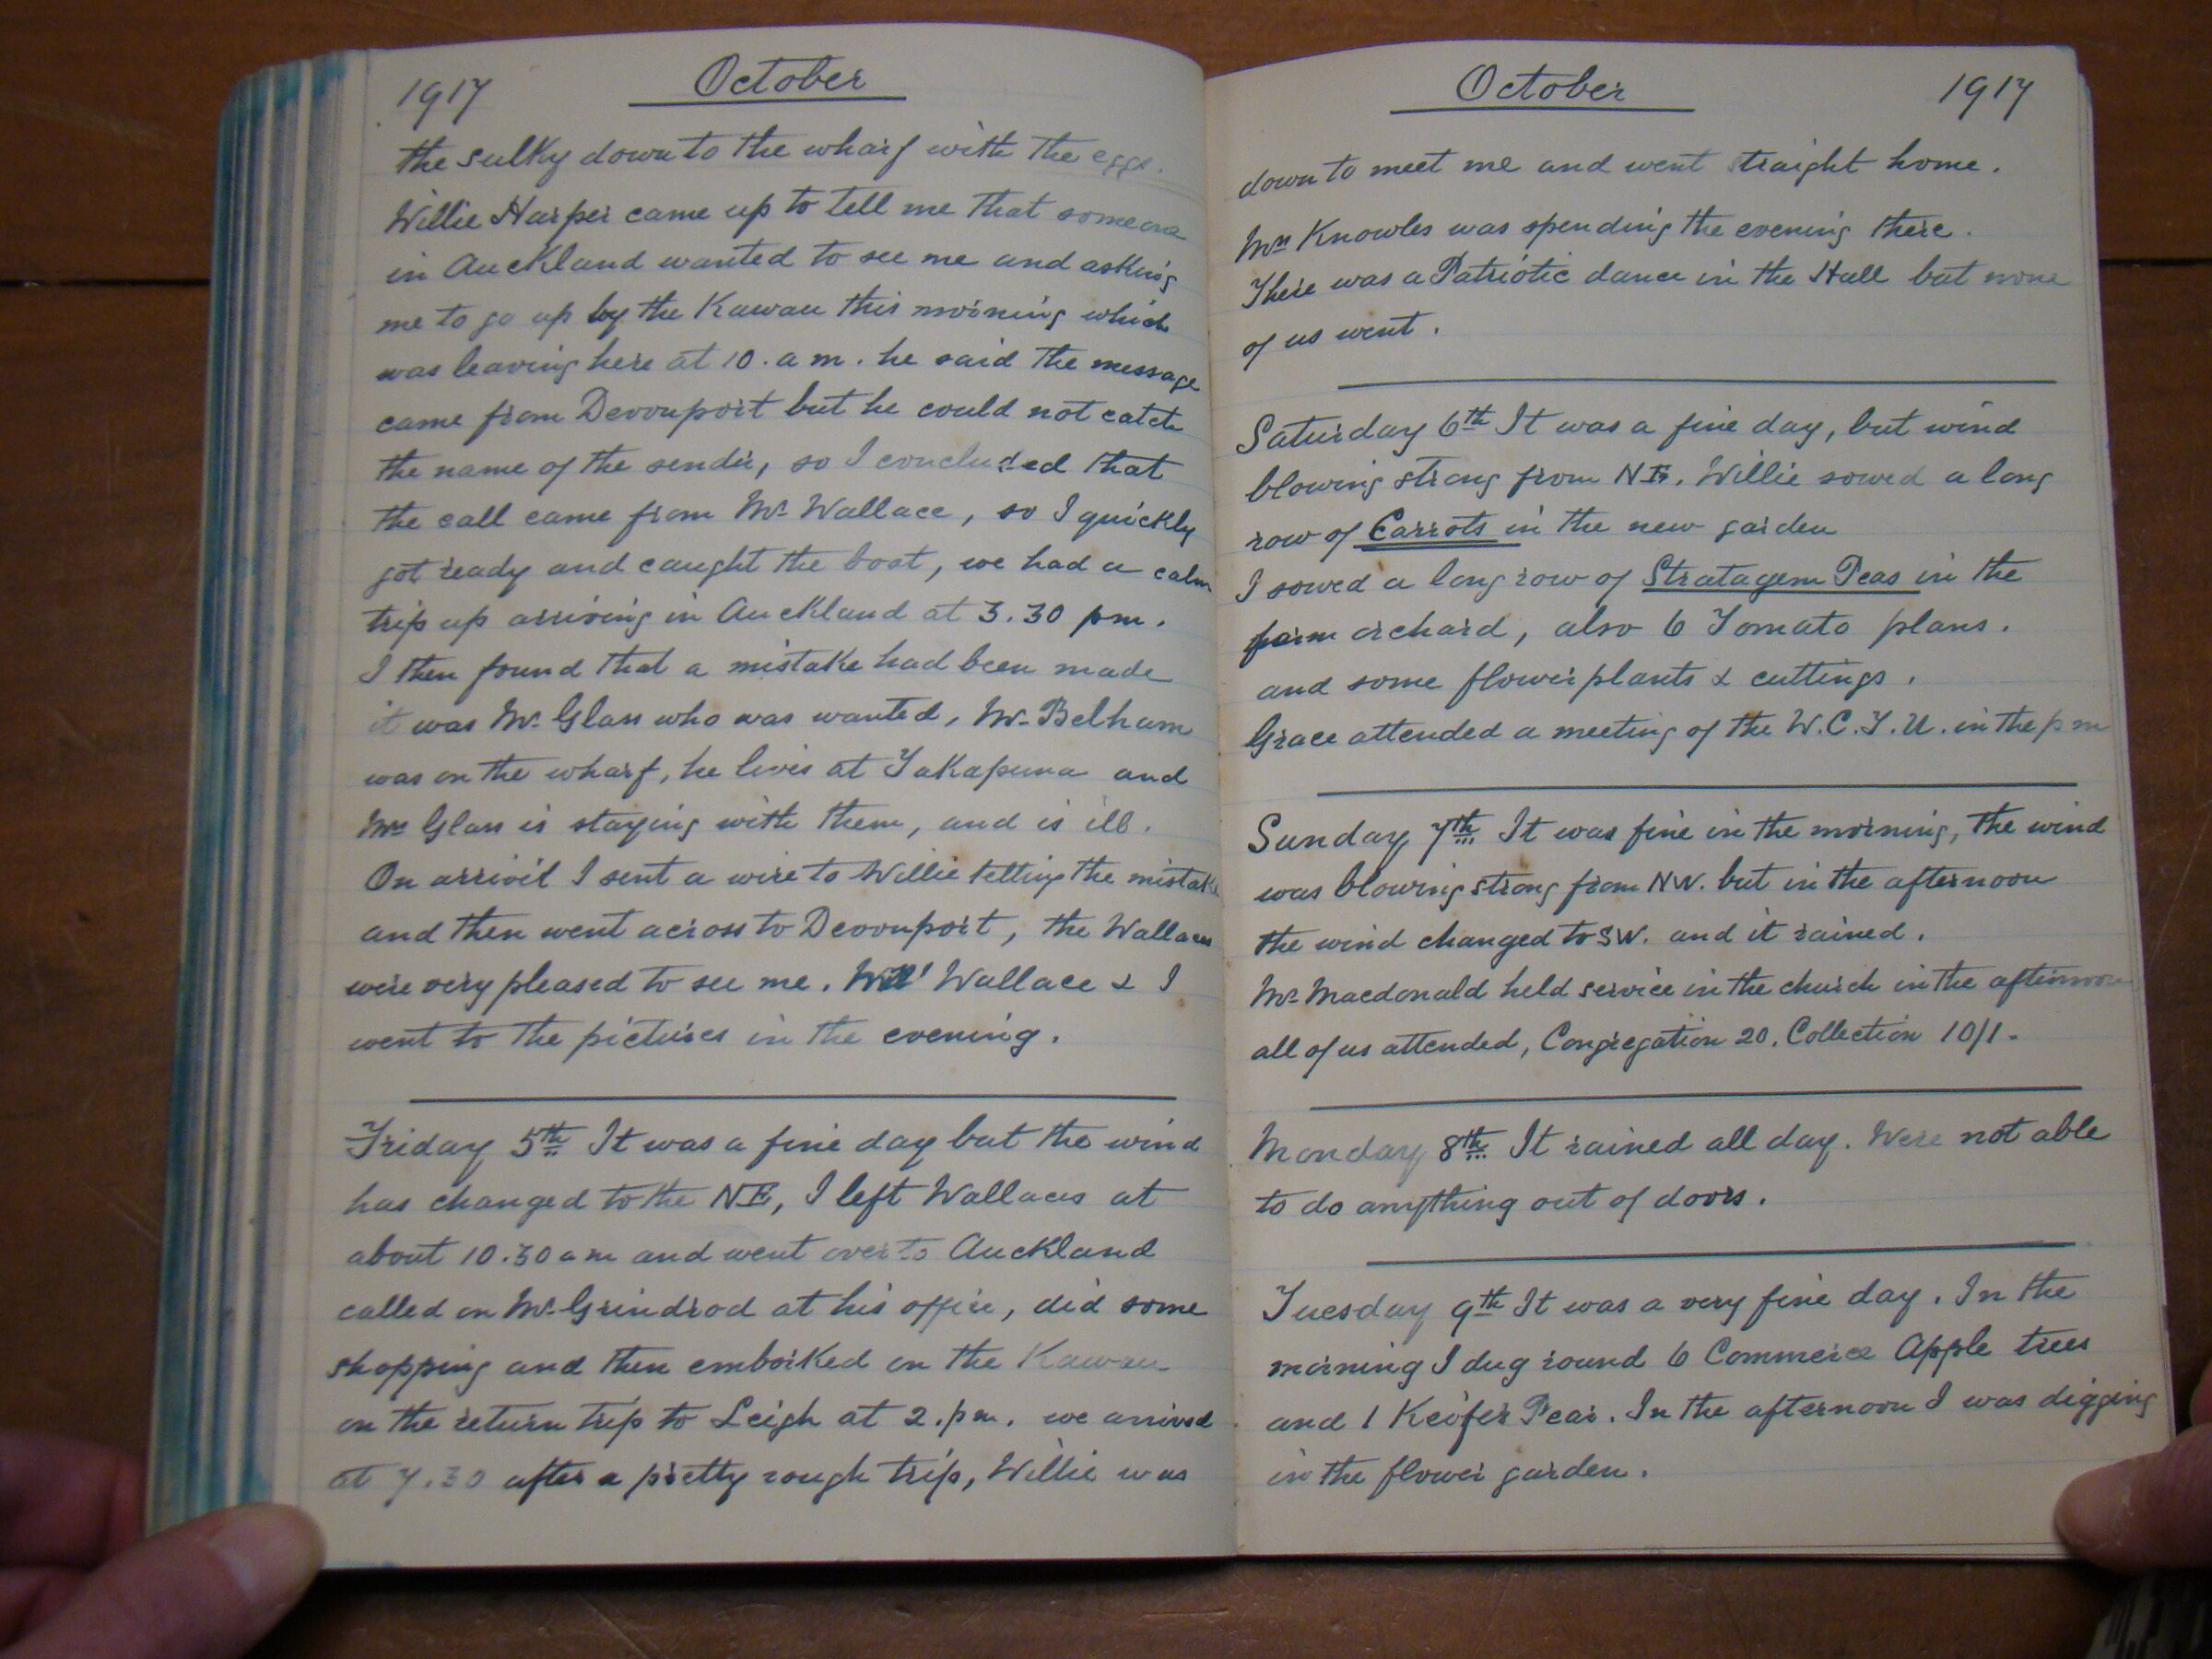 1917 October
the sulky down to the wharf with the eggs.
Willie Harper came up to tell me that someone
in Auckland wanted to see me and asking
me to go up by the Kawau this morning which
was leaving here at 10. a m. he said the message
came from Devonport but he could not catch
the name of the sender, so I concluded that
the call came from Mr Wallace, so I quickly
got ready and caught the boat, we had a calm
trip up arriving in Auckland at 3.30 pm.
I then found that a mistake had been made
it was Mr Glass who was wanted, Mr Belham
was on the wharf, he lives at Takapuna and
Mrs Glass is staying with them, and is ill.
On arrivil I sent a wire to Willie telling the mistake
and then went across to Devonport, the Wallaces
were very pleased to see me. Wallace & I
went to the pictures in the evening.
Friday 5th It was a fine day but the wind
has changed to the NE, I left Wallaces at
about 10.30 am and went over to Auckland
called on Mr Grindrod at his office, did some
shopping and then embarked on the Kawau
on the return trip to Leigh at 2. pm. we arrived
at 7.30 after a pretty rough trip, Willie was
October 1917
down to meet me and went straight home.
Mrs Knowles was spending the evening there.
There was a Patriotic dance in the Hall but none
of us went.
Saturday 6th It was a fine day, but wind
blowing strong from NE. Willie sowed a long
row of Carrots in the new garden
I sowed a long row of Stratagem Peas in the
farm orchard, also 6 Tomato plans.
and some flower plants & cuttings.
Grace attended a meeting of the W.C.T.U. in the pm
Sunday 7th It was fine in the morning, the wind
was blowing strong from NW. but in the afternoon
the wind changed to SW. and it rained.
Mr Macdonald held service in the church in the afternoon
all of us attended, Congregation 20. Collection 10/1-
Monday 8th It rained all day. Were not able
to do anything out of doors.
Tuesday 9th It was a very fine day. In the
morning I dug round 6 Commerce Apple trees
and 1 Keifer Pear. In the afternoon I was digging
in the flower garden.